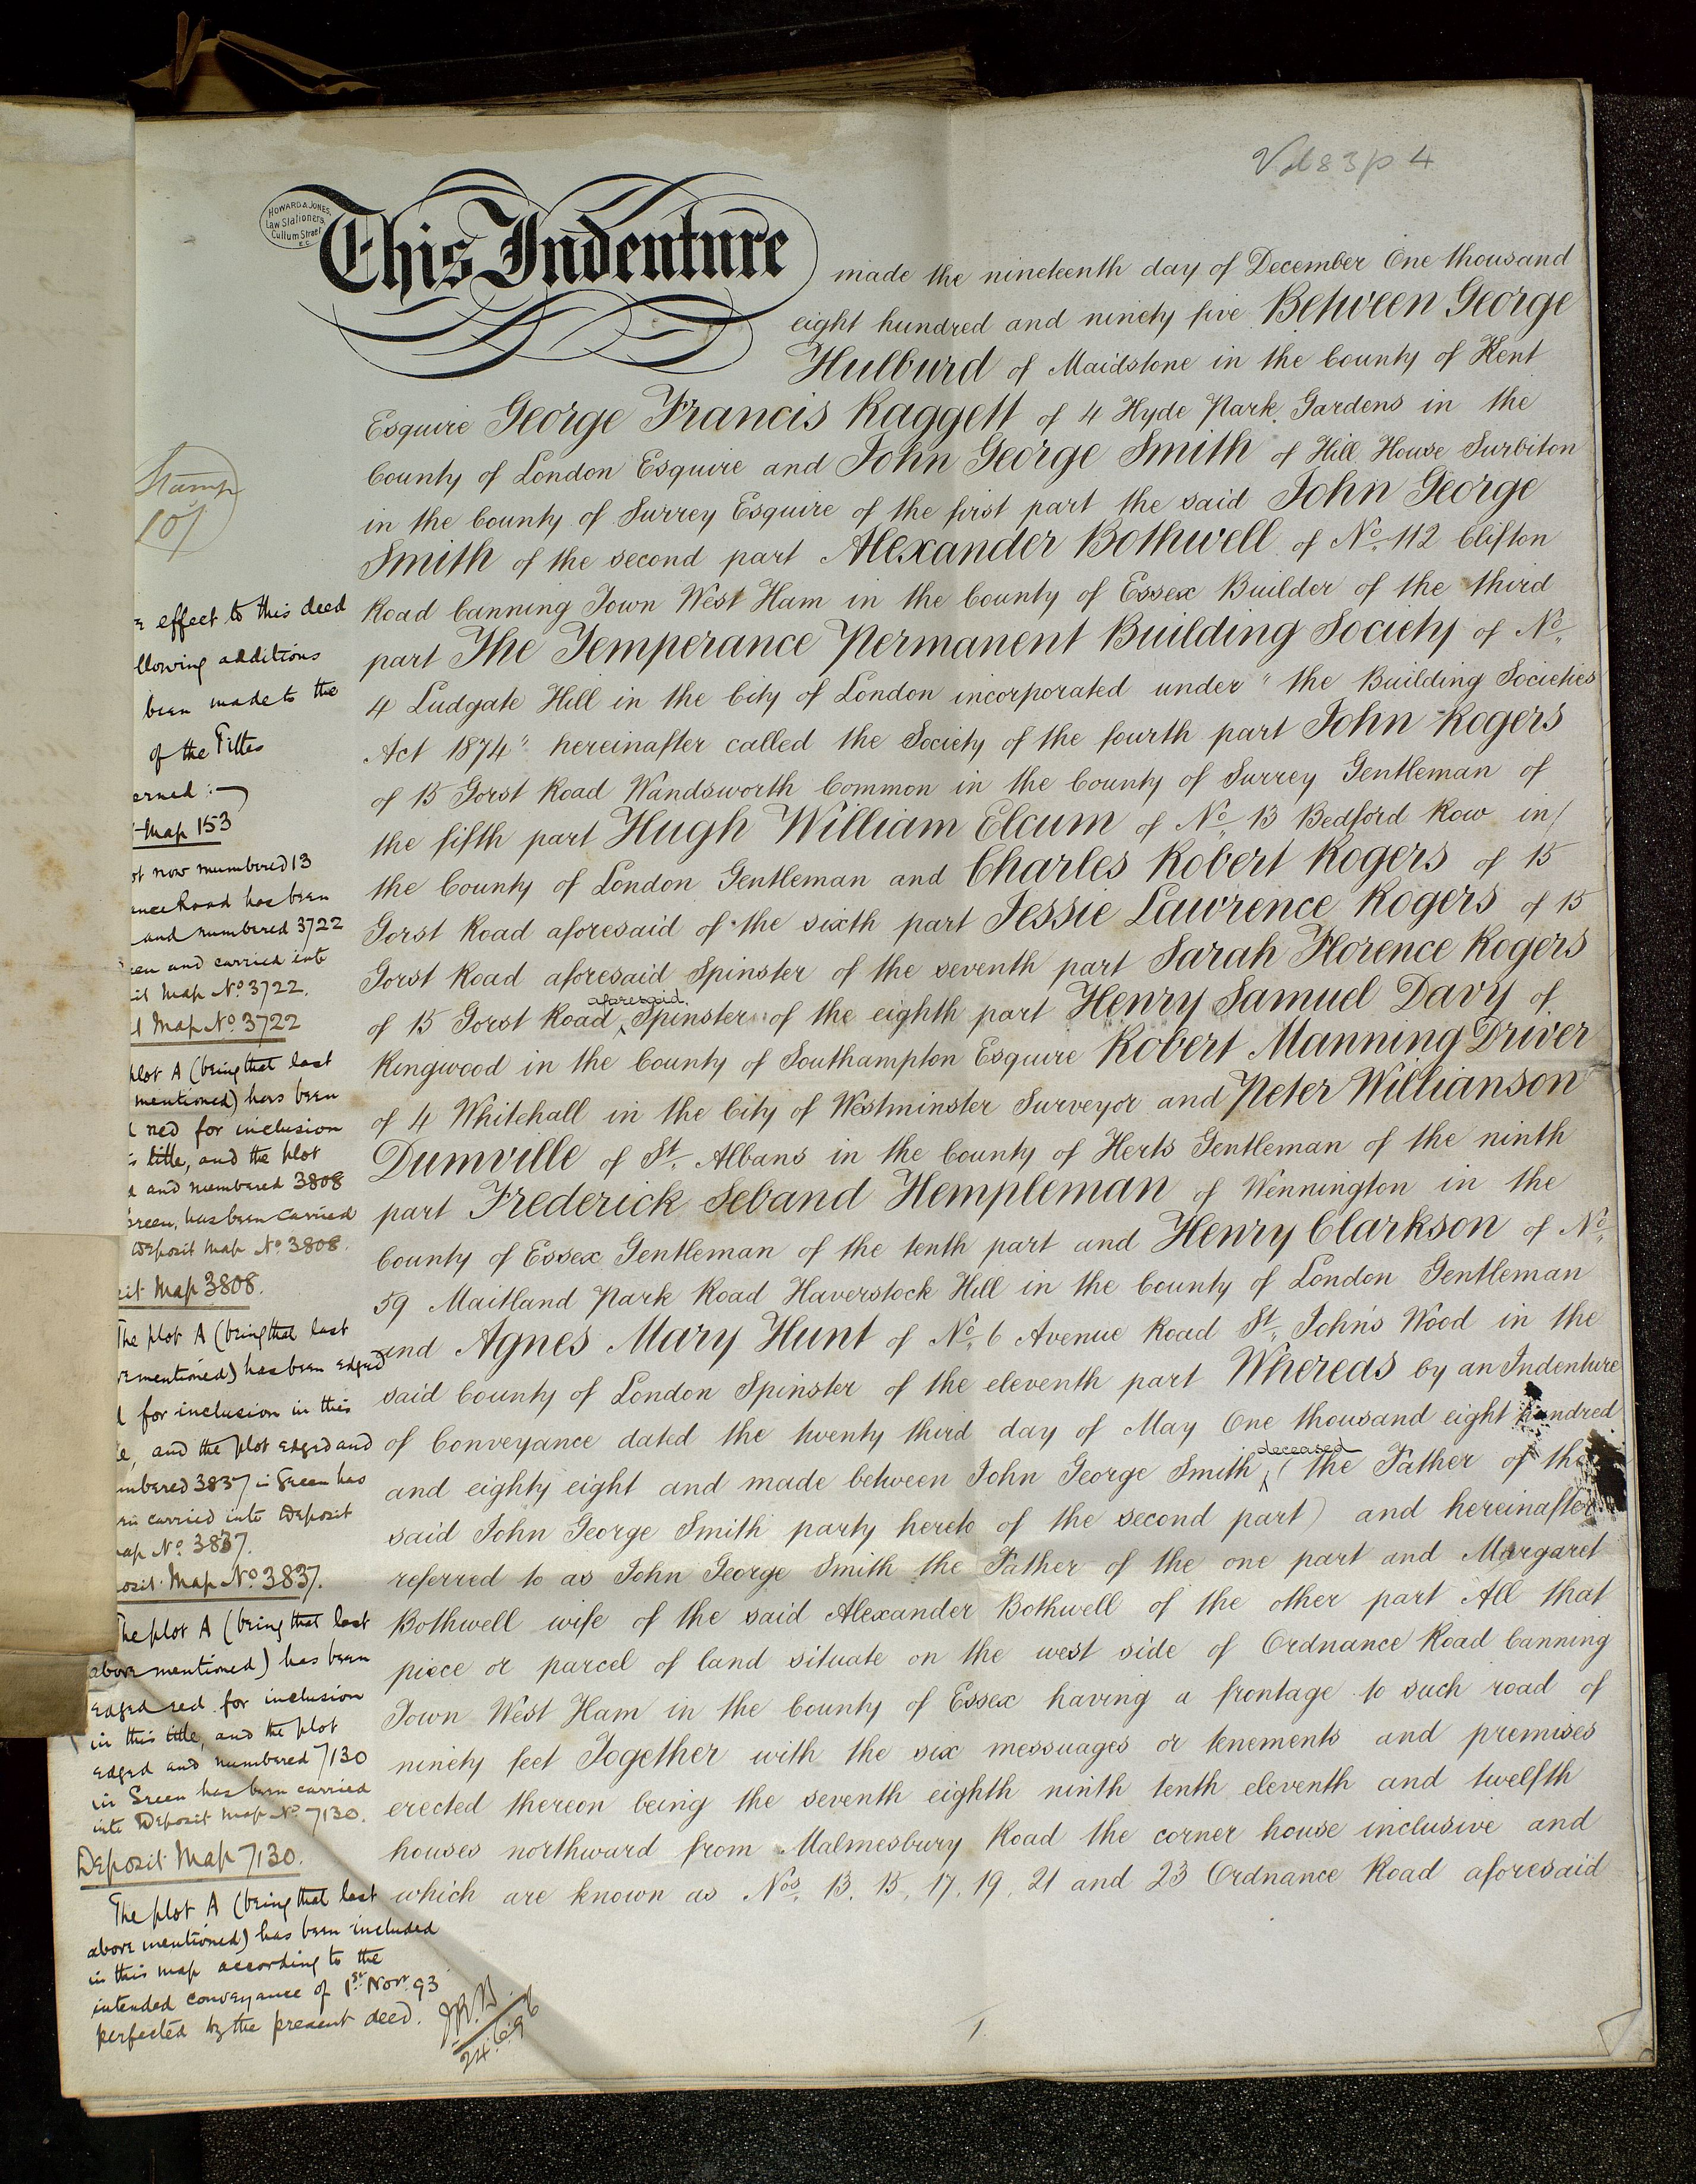 Vol 83 p 4
HOWARD & JONES,
Law Stationers,
Cullum Street
E.C.
This Indenture made the nineteenth day of December One thousand
eight hundred and ninety five Between George
Hulburd of Maidstone in the County of Kent
Esquire George Francis Raggett of 4 Hyde Park Gardens in the
County of London Esquire and John George Smith of Hill House Surbiton
in the County of Surrey Esquire of the first part the said John George
Smith of the second part Alexander Bothwell of No. 112 Clifton
Road Canning Town West Ham in the County of Essex Builder of the third
part The Temperance Permanent Building Society of No.
4 Ludgate Hill in the City of London incorporated under "the Building Societies
Act 1874" hereinafter called the Society of the fourth part John Rogers
of 15 Gorst Road Wandsworth Common in the County of Surrey Gentleman of
the fifth part Hugh William Elcum of No. 13 Bedford Row in/
the County of London Gentleman and Charles Robert Rogers of 15
Gorst Road aforesaid of the sixth part Jessie Lawrence Rogers of 15
Gorst Road aforesaid Spinster of the seventh part Sarah Florence Rogers
of 15 Gorst Road aforesaid Spinster of the eighth part Henry Samuel Davy of
Ringwood in the County of Southampton Esquire Robert Manning Driver
of 4 Whitehall in the City of Westminster Surveyor and Peter Willianson
Dumville of St. Albans in the County of Herts Gentleman of the ninth
part Frederick Seband Hempleman of Wennington in the
County of Essex Gentleman of the tenth part and Henry Clarkson of No.
59 Maitland Park Road Haverstock Hill in the County of London Gentleman
and Agnes Mary Hunt of No. 6 Avenue Road St. John's Wood in the
said County of London Spinster of the eleventh part Whereas by an Indenture
of Conveyance dated the twenty third day of May One thousand eight hundred
and eighty eight and made between John George Smith deceased (the Father of the
said John George Smith party hereto of the second part) and hereinafter
referred to as John George Smith the Father of the one part and Margaret
Bothwell wife of the said Alexander Bothwell of the other part All that
piece or parcel of land situate on the west side of Ordnance Road Canning
Town West Ham in the County of Essex having a frontage to such road of
ninety feet Together with the six messuages or tenements and premises
erected thereon being the seventh eighth ninth tenth eleventh and twelfth
houses northward from Malmesbury Road the corner house inclusive and
which are known as Nos. 13, 15, 17, 19, 21 and 23 Ordnance Road aforesaid
1
Stamp
10/
effect to this deed
llowing additions
been made to the
of the Titles
erned :—
Map 153
ot now numbered 13
ance Road has been
and numbered 3722
een and carried into
it Map No. 3722.
Map No. 3722
plot A (being that last
mentioned) has been
red for inclusion
title, and the plot
and numbered 3808
Green, has been carried
Deposit Map No. 3808.
sit Map 3808.
The plot A (being that last
mentioned) has been edged
for inclusion in this
, and the plot edged and
umbered 3837 in Green has
carried into Deposit
Map No. 3837.
osit Map No. 3837.
The plot A (being that last
above mentioned) has been
edged red for inclusion
in this title, and the plot
edged and numbered 7130
in Green has been carried
into Deposit Map No. 7130.
Deposit Map 7130.
The plot A (being that last
above mentioned) has been included
in this map according to the
intended conveyance of 1st Novr. 93
perfected by the present deed.
24.6.96